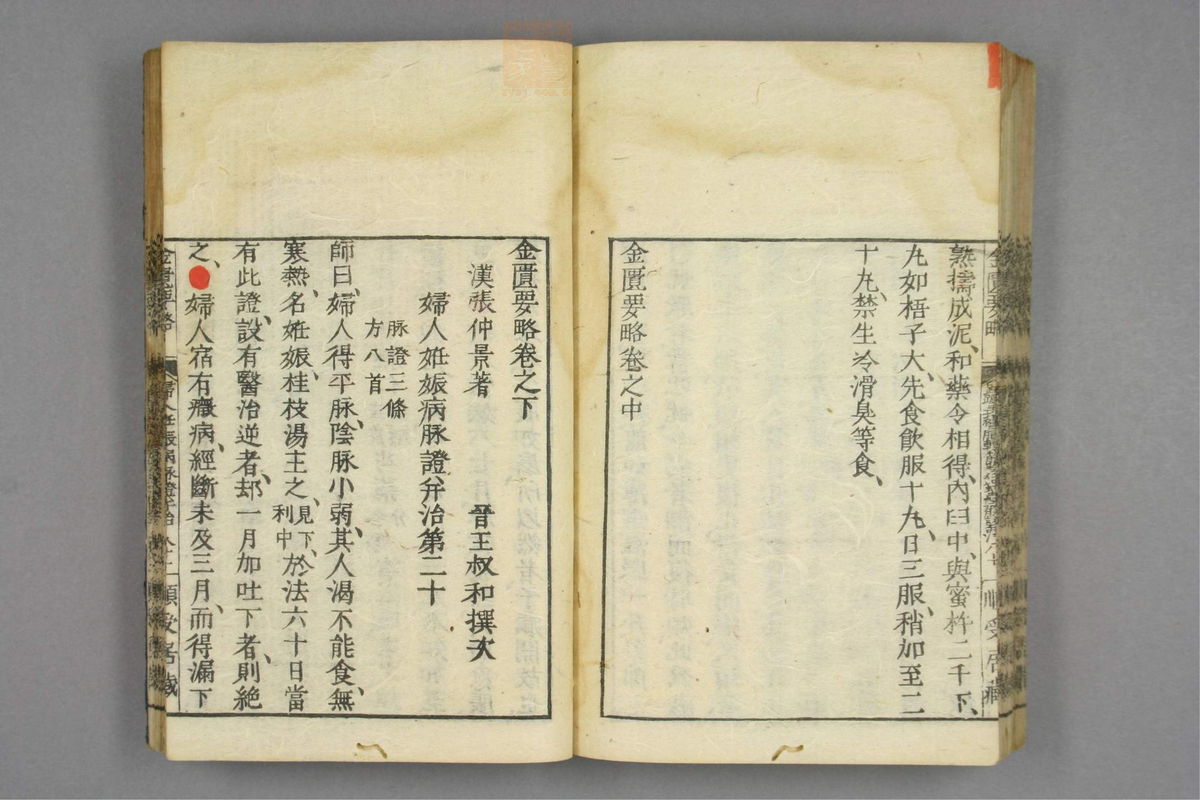 熟擣成泥、和藥令相得、內臼中、與蜜杵二千下、
丸如梧子大、先食飲服十丸、日三服、稍加至二
十丸、禁生冷滑臭等食、
金匱要略卷之中
金匱要略卷之下
漢張仲景著　晉王叔和撰次
婦人妊娠病脉證并治第二十
脉證三條
方八首
師曰、婦人得平脉、陰脉小弱、其人渴不能食、無
寒熱、名妊娠、桂枝湯主之、見下利中、於法六十日當
有此證、設有醫治逆者、却一月加吐下者、則絕
之、●婦人宿有癥病、經斷未及三月、而得漏下
金匱要略
順受居藏